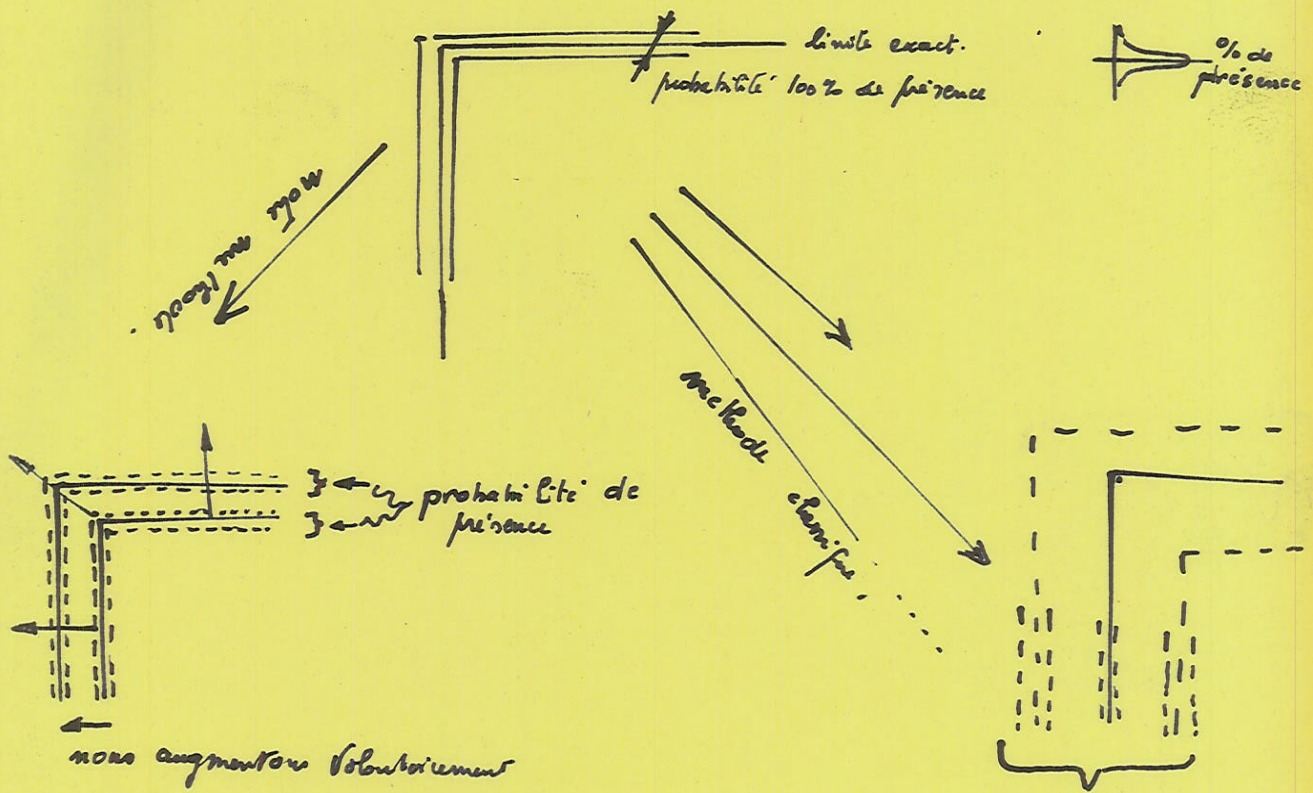 limite exact.
probabilité 100% de présence
% de
présence
notre methode
probabilité de
présence
methode
nous augmentons Volontairement